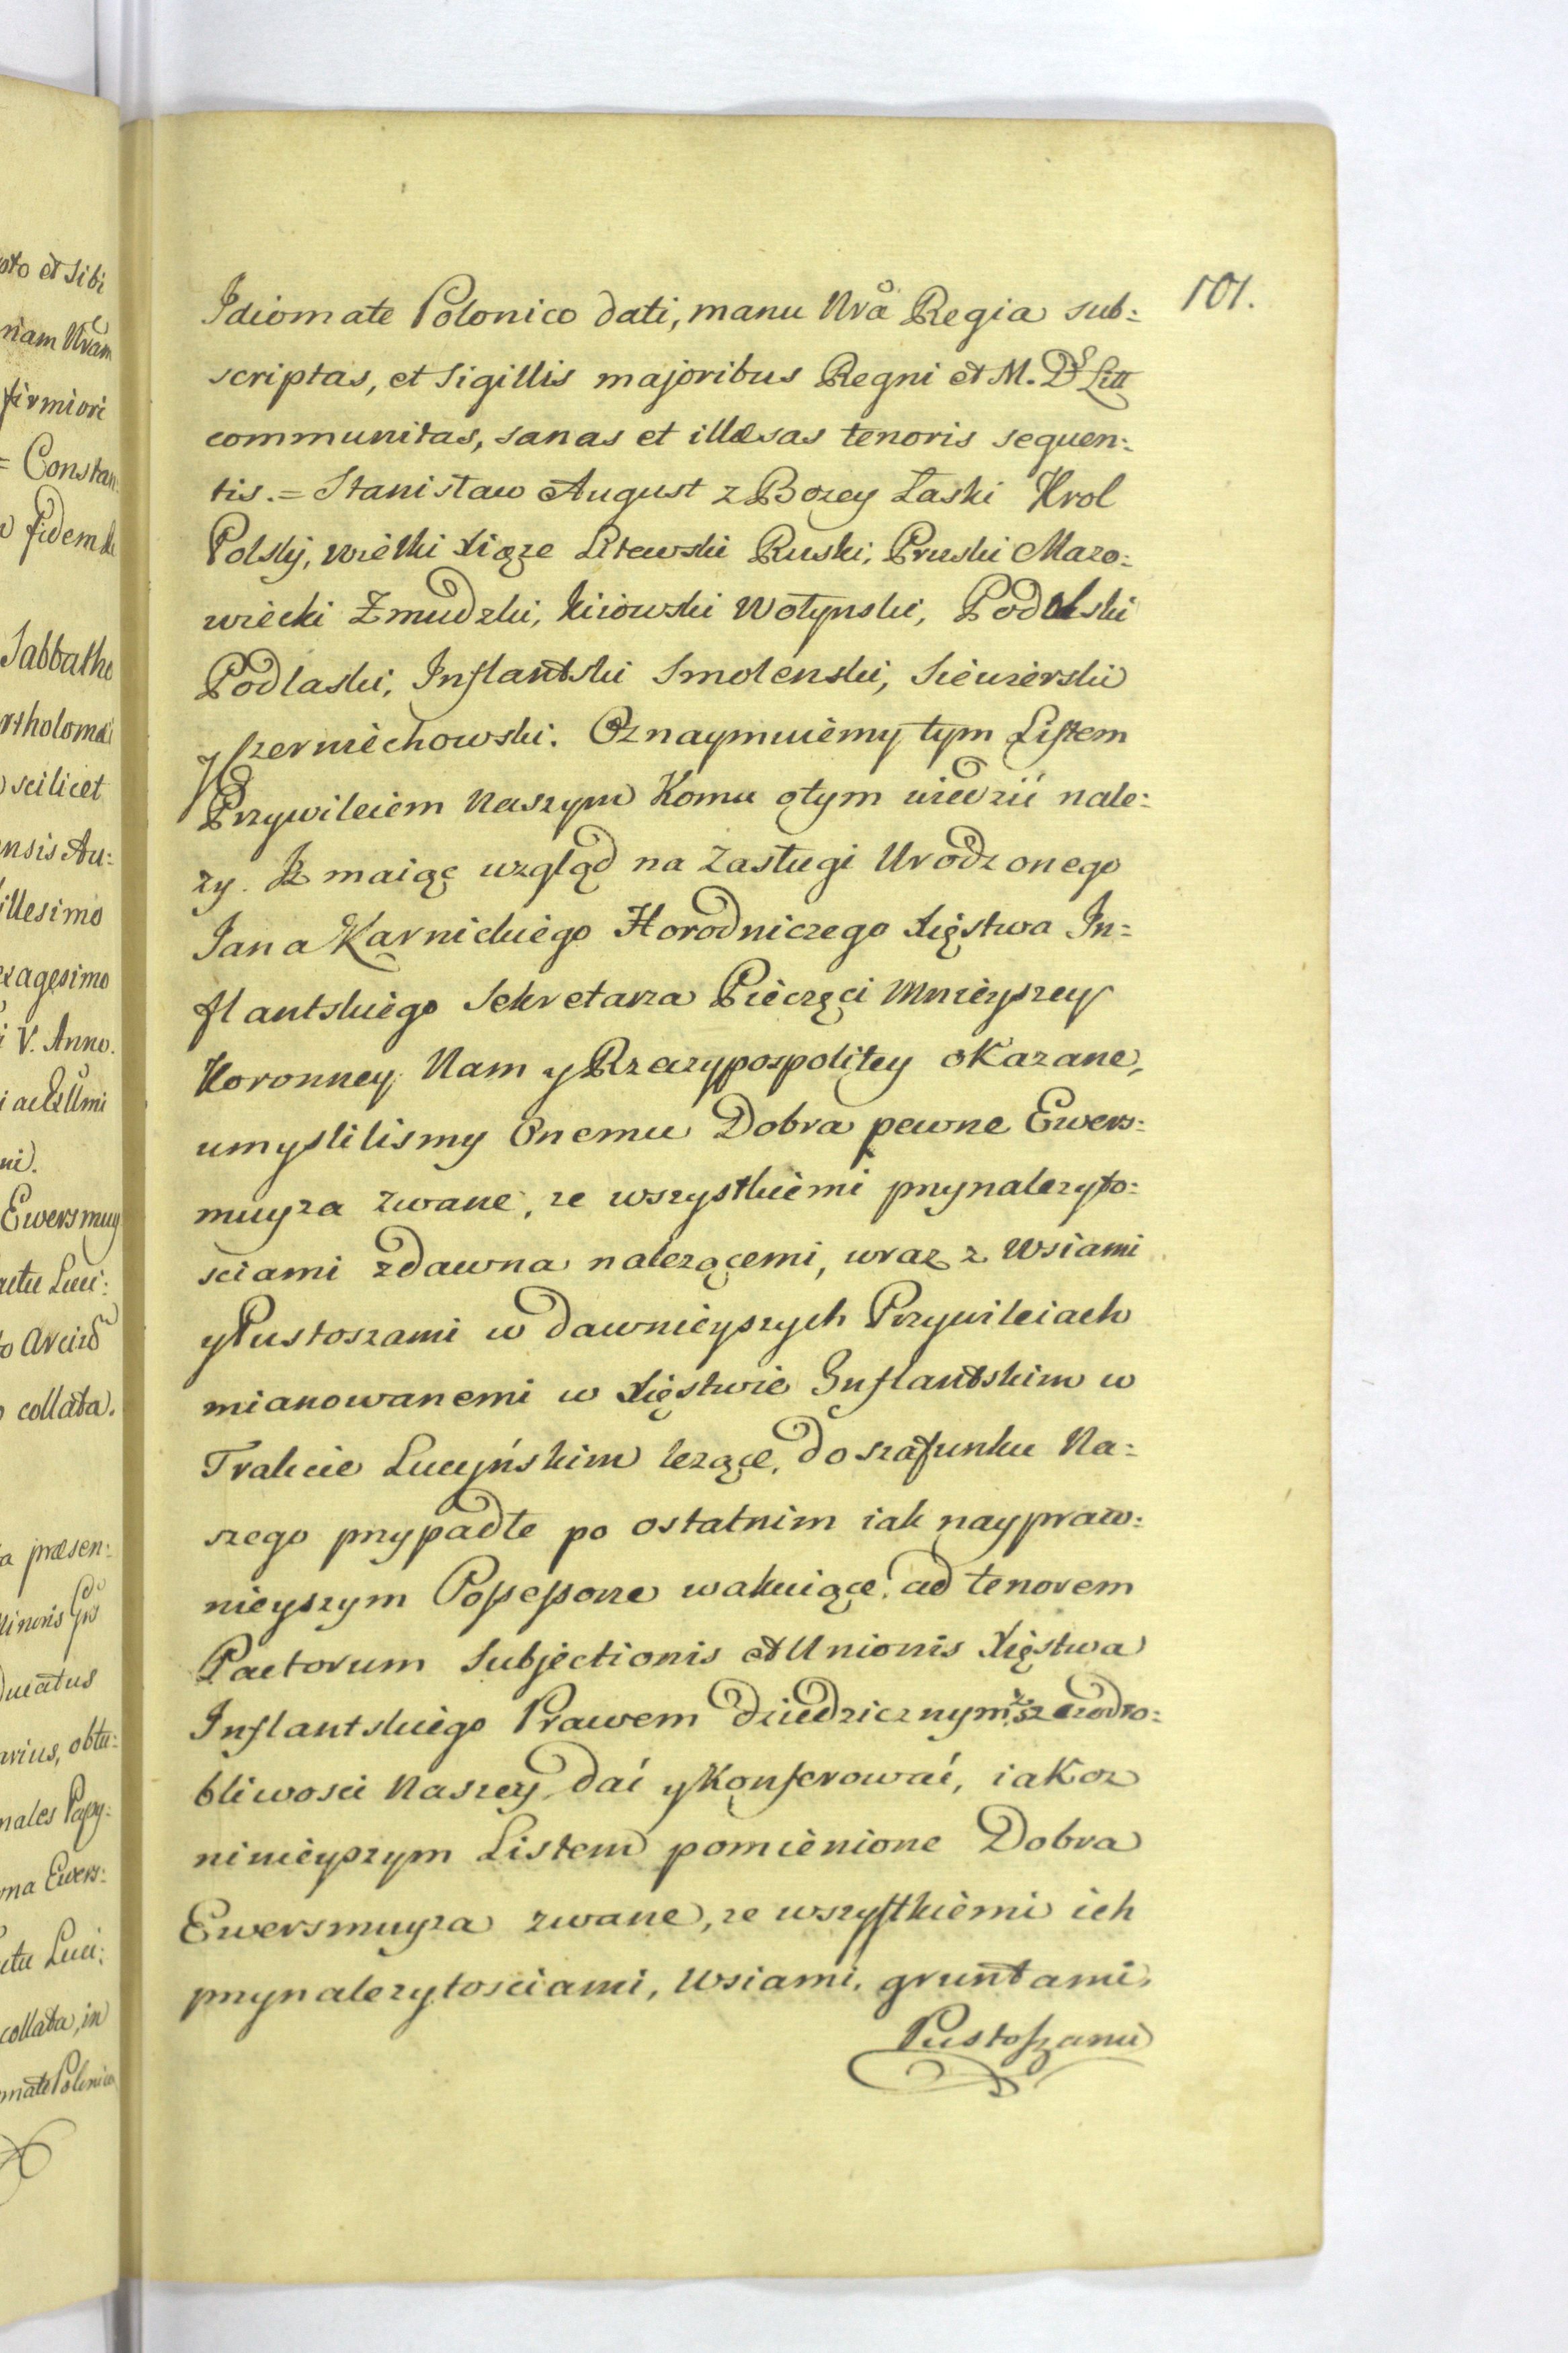 101.
Idiomate Polonico dati, manu Nrã Regia sub:
scriptas, et Sigillis majoribus Regni et M. D. Litt
communitas, sanas et illæsas tenoris sequen:
tis. = Stanisław August z Bozey Łaski Krol
Polskj, wielki Xiąze Litewski Ruski, Pruski Mazo:
wiecki Zmudzki, Kiiowski Wołynski, Podolski
Podlaski, Inflantski Smolenski, Siewierski
y Czerniechowski. Oznaymuiemy tym Listem
Przywileiem Naszym Komu o tym wiedzić nale:
zy. Iz maiąc wzgląd na Zasługi Urodzonego
Jana Karnickiego Horodniczego Xięstwa In:
flantskiego Sekretarza Pieczęci Mnieyszey
Koronney Nam y Rzeczypospolitey okazane,
umyslilismy Onemu Dobra pewne Ewers:
muyza zwane, ze wszystkiemi przynalezyto:
sciami zdawna nalezącemi, wraz z Wsiami
y Pustoszami w dawnieyszych Przywileiach
mianowanemi w Xięstwie Inflantskim w
Trakcie Lucyńskim lezące, do szafunku Na:
szego przypadłe po ostatnim iak naypraw:
nieyszym Possessorze wakuiące, ad tenorem
Pactorum Subjectionis et Unionis Xięstwa
Inflantskiego Prawem dziedzicznym z szczodro:
bliwosci Naszey dać y konferować, iakoz
ninieyszym Listem pomienione Dobra
Ewersmuyza zwane, ze wszystkiemi ich
przynalezytosciami, Wsiami, gruntami,
Pustoszami